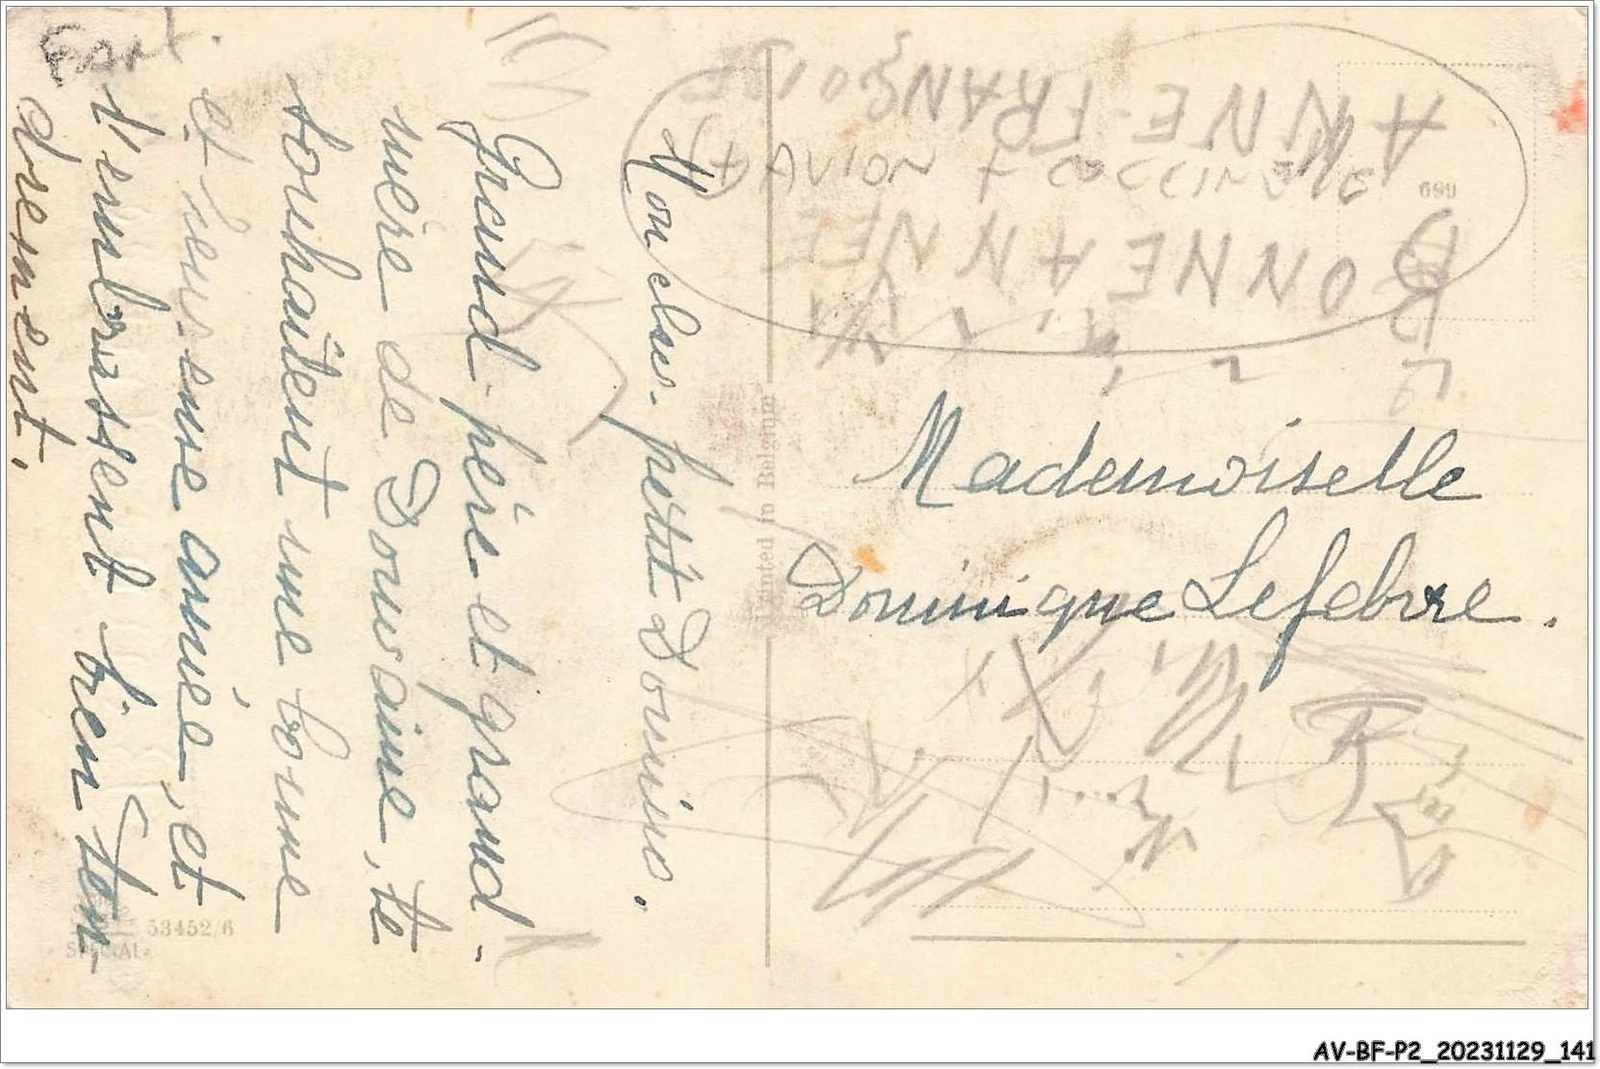 Fant.
Mon cher petit Domino.
Grand-père et grand-
mère de Douvaine, te
souhaitent une bonne
et heureuse année, et
t'embrassent bien ten
drement.
53452/6
Printed in Belgium
ANNE-FRANÇOISE
COCCINELLE
BONNE ANNEE
699
Mademoiselle
Dominique Lefebvre.
AV-BF-P2_20231129_141